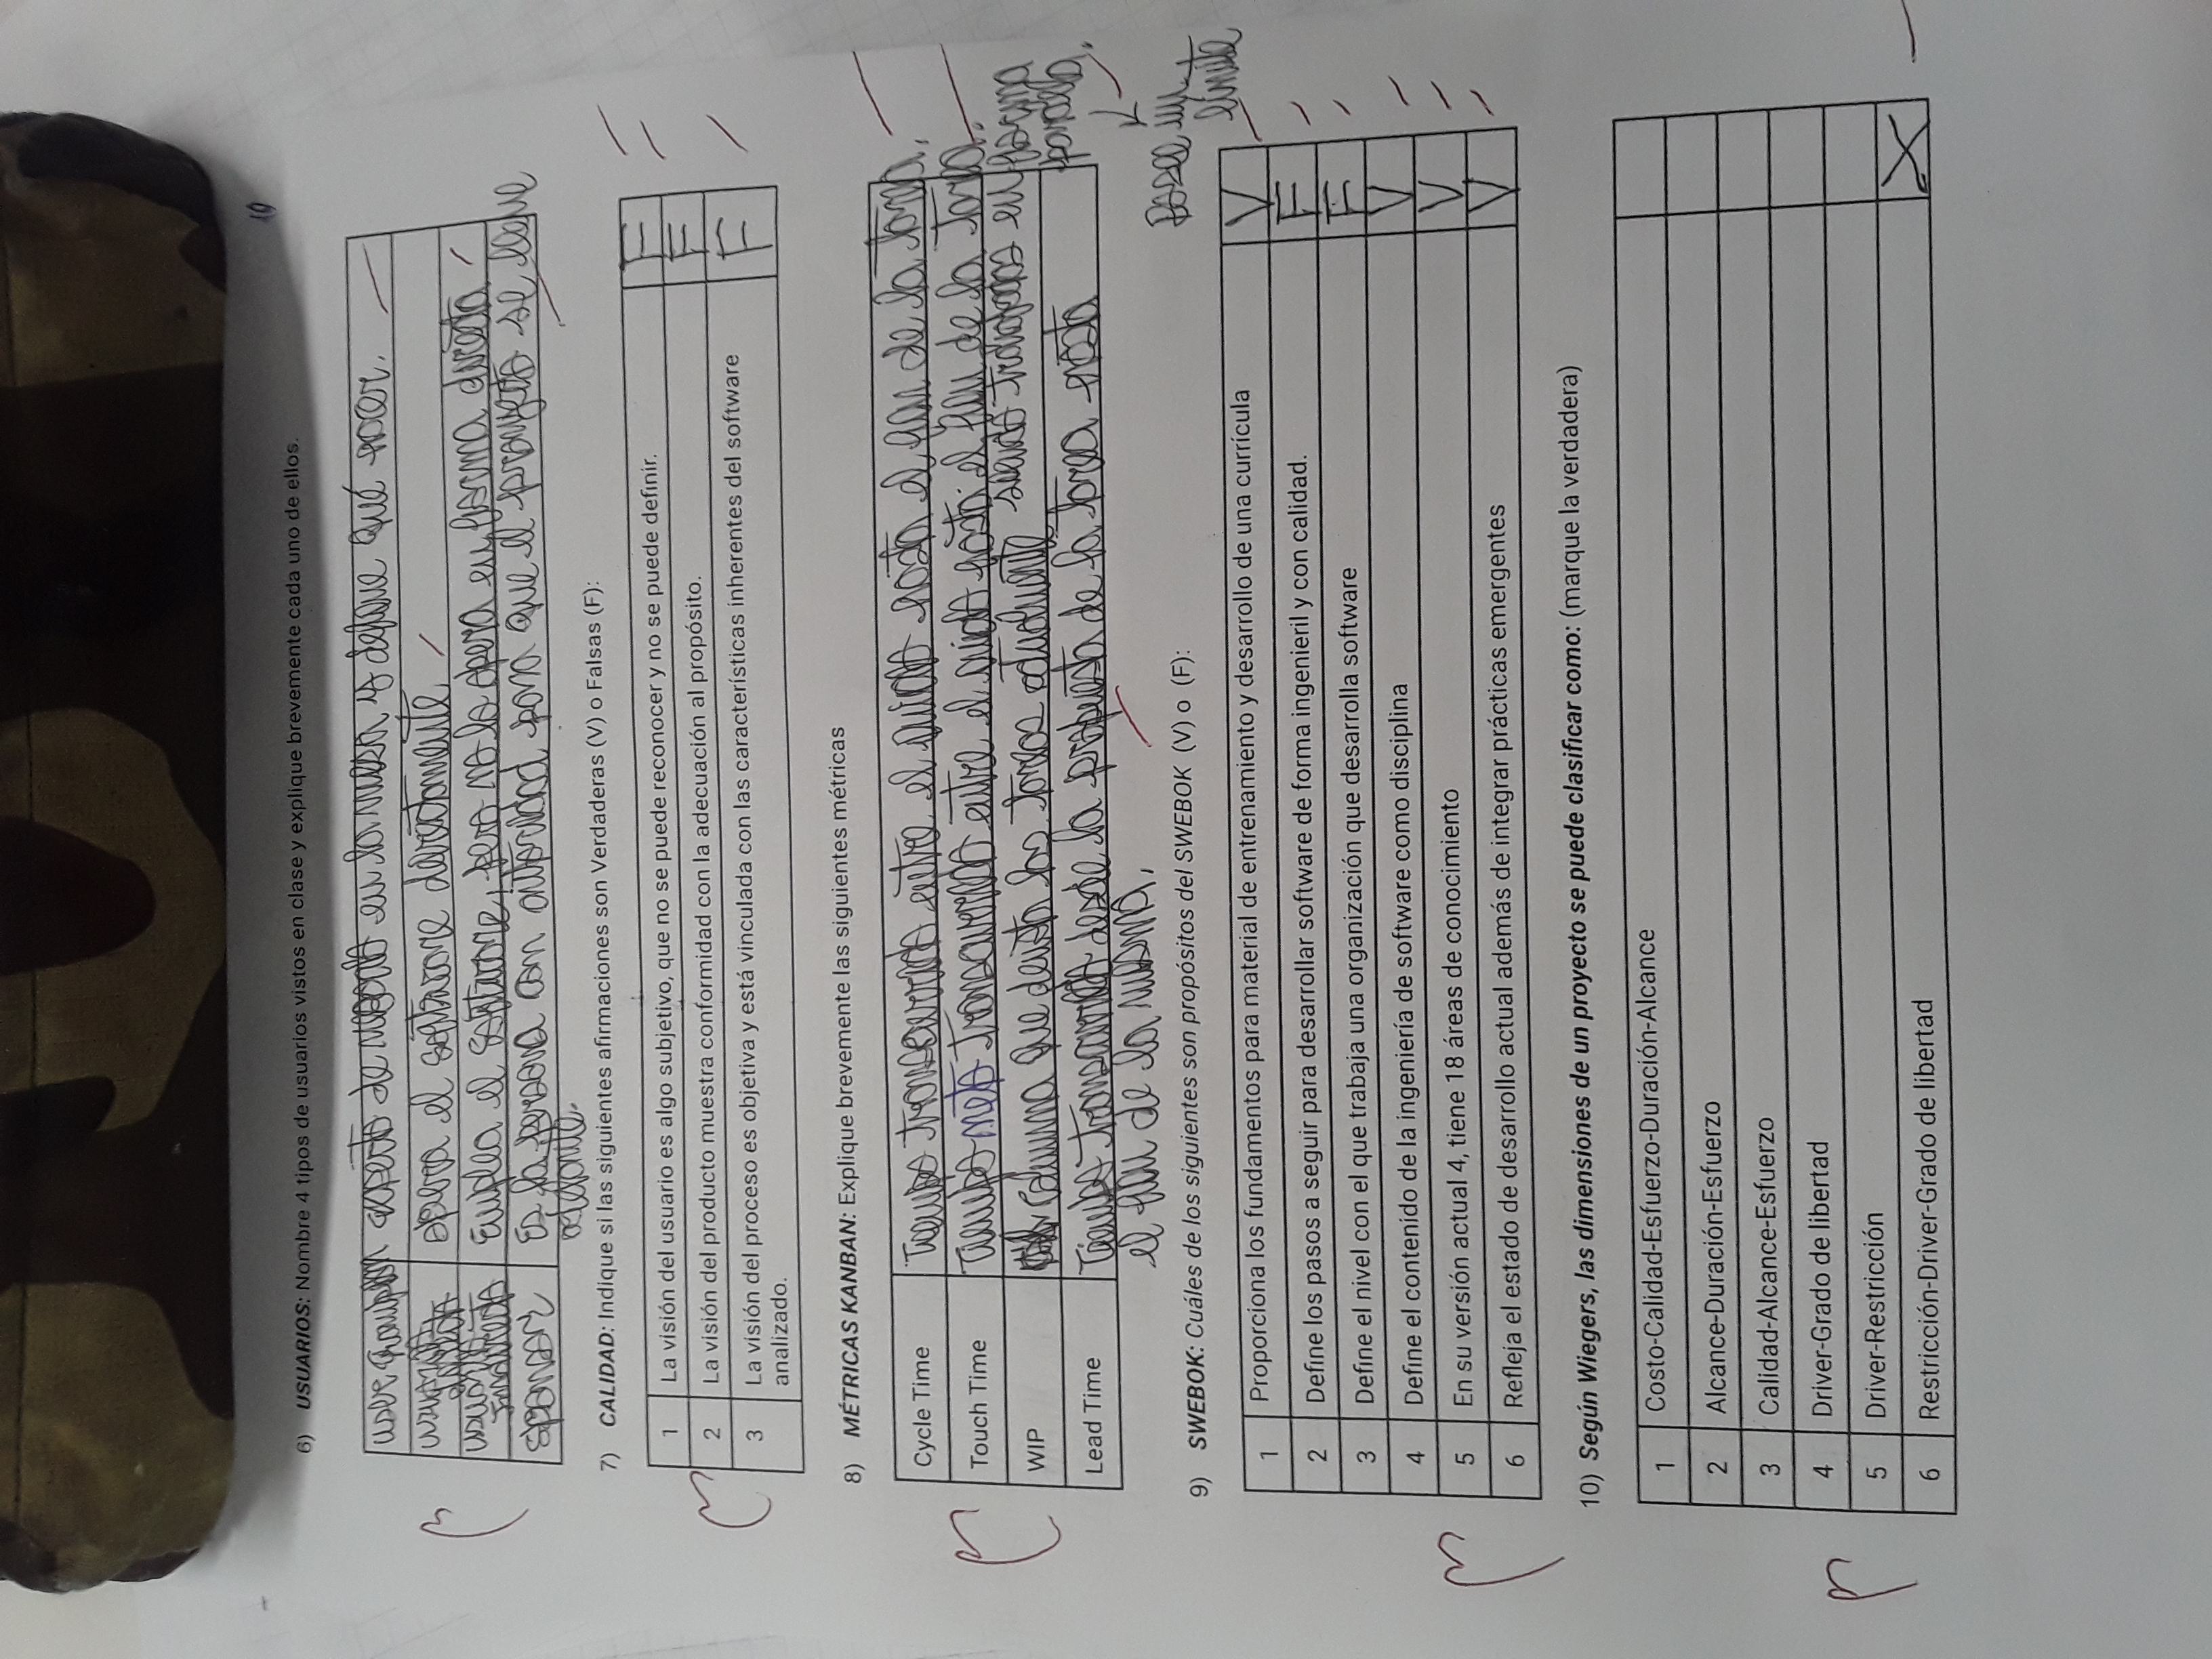 10
6) USUARIOS: Nombre 4 tipos de usuarios vistos en clase y explique brevemente cada uno de ellos.
user champion experto de negocio en la mesa y define qué hacer.
usuario directo opera el software directamente
usuario Indirecto Emplea el software, pero no lo opera en forma directa
sponsor Es la persona con autoridad para que el proyecto se lleve
adelante.
7) CALIDAD: Indique si las siguientes afirmaciones son Verdaderas (V) o Falsas (F):
1 La visión del usuario es algo subjetivo, que no se puede reconocer y no se puede definir. F
2 La visión del producto muestra conformidad con la adecuación al propósito. F
3 La visión del proceso es objetiva y está vinculada con las características inherentes del software F
analizado.
8) MÉTRICAS KANBAN: Explique brevemente las siguientes métricas
Cycle Time Tiempo transcurrido entre el inicio hasta el fin de la tarea.
Touch Time Tiempo neto transcurrido entre el inicio hasta el fin de la tarea.
WIP columna que denota las tareas actualmente siendo trabajadas en forma
paralela.
Lead Time Tiempo transcurrido desde la propuesta de la tarea hasta
el fin de la misma.
Posee un
límite
9) SWEBOK: Cuáles de los siguientes son propósitos del SWEBOK (V) o (F):
1 Proporciona los fundamentos para material de entrenamiento y desarrollo de una currícula V
2 Define los pasos a seguir para desarrollar software de forma ingenieril y con calidad. F
3 Define el nivel con el que trabaja una organización que desarrolla software F
4 Define el contenido de la ingeniería de software como disciplina V
5 En su versión actual 4, tiene 18 áreas de conocimiento V
6 Refleja el estado de desarrollo actual además de integrar prácticas emergentes V
10) Según Wiegers, las dimensiones de un proyecto se puede clasificar como: (marque la verdadera)
1 Costo-Calidad-Esfuerzo-Duración-Alcance
2 Alcance-Duración-Esfuerzo
3 Calidad-Alcance-Esfuerzo
4 Driver-Grado de libertad
5 Driver-Restricción
6 Restricción-Driver-Grado de libertad X